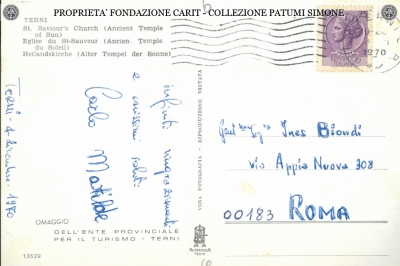 PROPRIETA' FONDAZIONE CARIT - COLLEZIONE PATUMI SIMONE
TERNI
St. Saviour's Church (Ancient Temple
of Sun)
Eglise du St-Sauveur (Ancien. Temple
du Soleil)
Heilandskirche (Alter Tempel der Sonne)
1970
infiniti ringraziamenti
e carissimi saluti
Carlo Matilde
Terni - 4 Dicembre - 1970
VERA FOTOGRAFIA - RIPRODUZIONE VIETATA
Ines Biondi
via Appia Nuova 308
00183 ROMA
OMAGGIO
DELL'ENTE PROVINCIALE
PER IL TURISMO - TERNI
13629
ALTEROCCA
TERNI